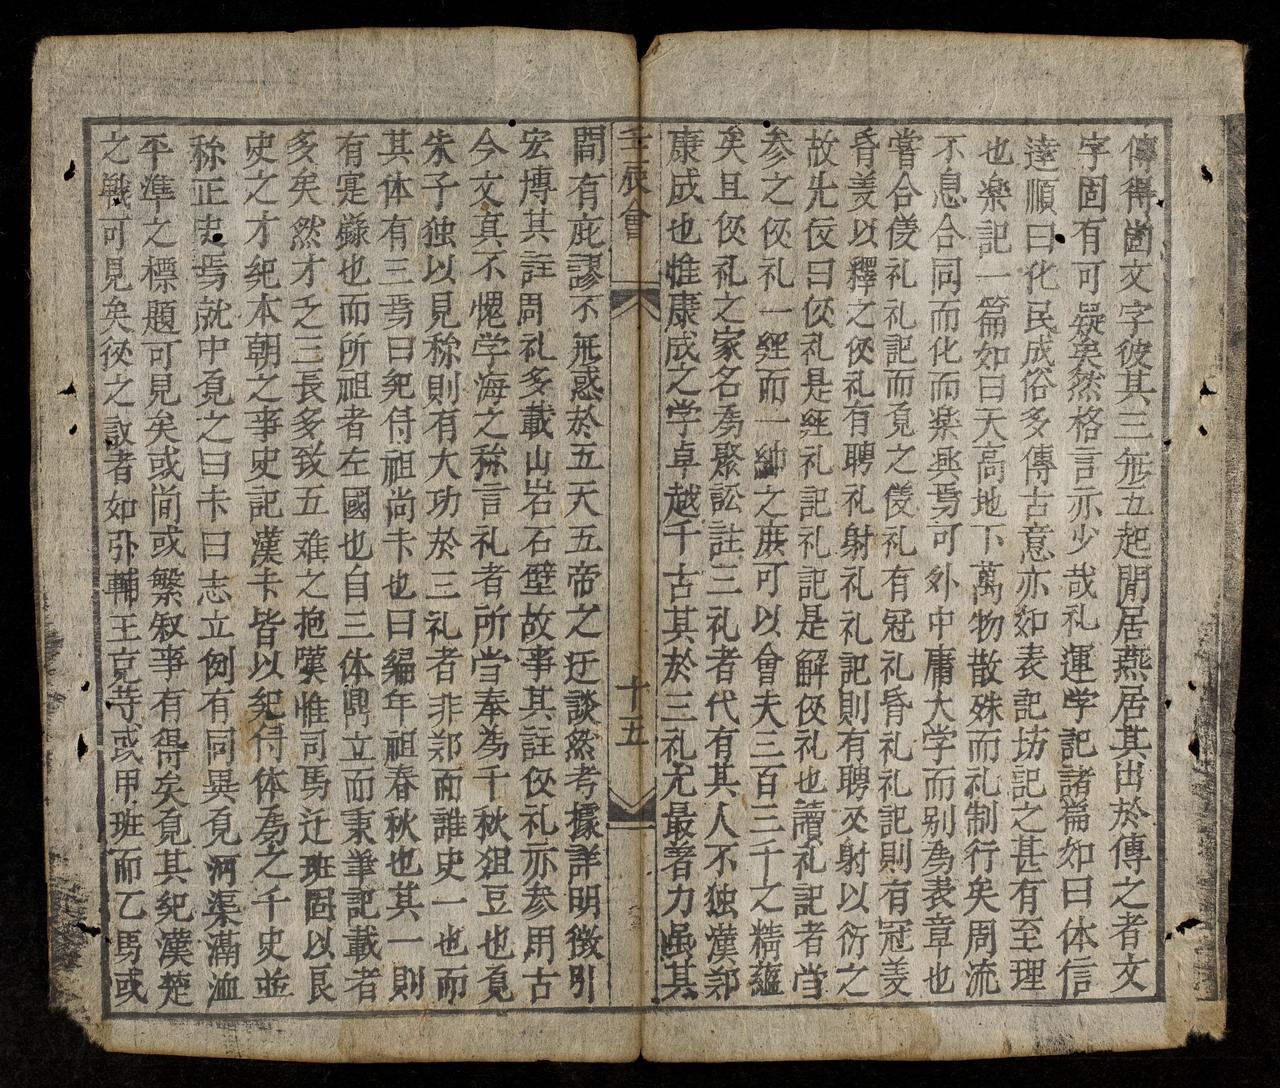 傳得箇文字彼其三無五起閒居燕居其出於傳之者文
字固有可疑矣然格言亦少哉礼運学記諸篇如曰体信
達順曰化民成俗多傳古意亦如表記坊記之甚有至理
也楽記一篇如曰天高地下萬物散殊而礼制行矣周流
不息合同而化而楽興焉可外中庸大学而别為表章也
嘗合儀礼礼記而覔之儀礼有冠礼昏礼礼記則有冠義
昏義以釋之儀礼有聘礼射礼礼記則有聘义射以衍之
故先仅曰仪礼是經礼記礼記是解仪礼也讀礼記者当
参之仪礼一經而一緯之庶可以會夫三百三千之精蘊
矣且仪礼之家名為聚訟註三礼者代有其人不独漢郑
康成也惟康成之学卓越千古其於三礼尤最著力虽其
壬戌會
十五
間有庇謬不無惑於五天五帝之迂談然考據詳明徴引
宏博其註周礼多載山岩石壁故事其註仪礼亦参用古
今文真不愧学海之称言礼者所当奉為千秋俎豆也覔
朱子独以見称則有大功於三礼者非郑而誰史一也而
其体有三焉曰紀传祖尚卞也曰編年祖春秋也其一則
有寔籙也而所祖者左國也自三体鼎立而秉筆記載者
多矣然才乏三長多致五难之抱嘆惟司馬迁班固以良
史之才紀本朝之事史記漢卞皆以紀传体為之千史並
称正史焉就中覔之曰卞曰志立例有同異覔河渠溝洫
平準之標題可見矣或简或繁叙事有得矣覔其紀漢楚
之戦可見矣後之議者如张輔王充等或甲班而乙馬或